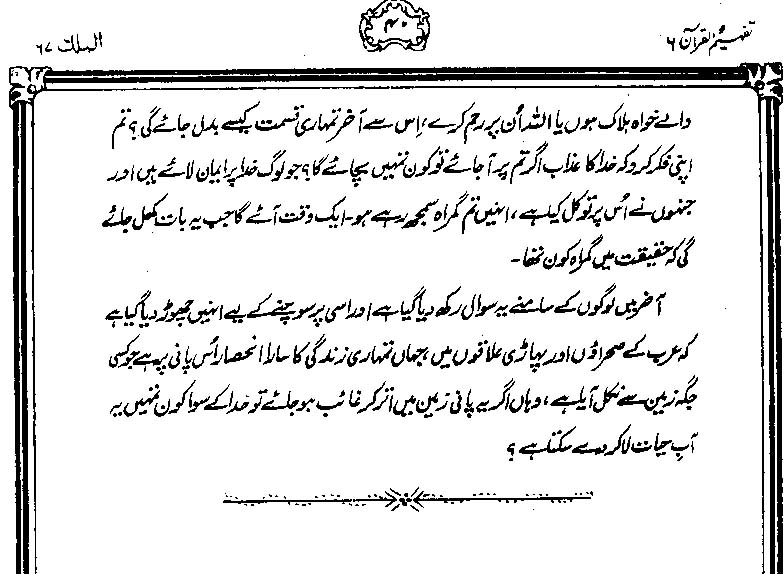 تفہیم القرآن ۶
۴۰
الملک ۶۷
والے خواہ ہلاک ہوں یا اللہ اُن پر رحم کرے، اِس سے آخر تمہاری قسمت کیسے بدل جائے گی؟ تم
اپنی فکر کرو کہ خدا کا عذاب اگر تم پر آجائے تو کون تمہیں بچائے گا؟ جو لوگ خدا پر ایمان لائے ہیں اور
جنہوں نے اُس پر توکل کیا ہے، انہیں تم گمراہ سمجھ رہے ہو۔ ایک وقت آئے گا جب یہ بات کھل جائے
گی کہ حقیقت میں گمراہ کون تھا۔
آخر میں لوگوں کے سامنے یہ سوال رکھ دیا گیا ہے اور اسی پر سوچنے کے لیے انہیں چھوڑ دیا گیا ہے
کہ عرب کے صحراؤں اور پہاڑی علاقوں میں، جہاں تمہاری زندگی کا سارا انحصار اُس پانی پر ہے جو کسی
جگہ زمین سے نکل آیا ہے، وہاں اگر یہ پانی زمین میں اتر کر غائب ہو جائے تو خدا کے سوا کون تمہیں یہ
آبِ حیات لا کر دے سکتا ہے؟